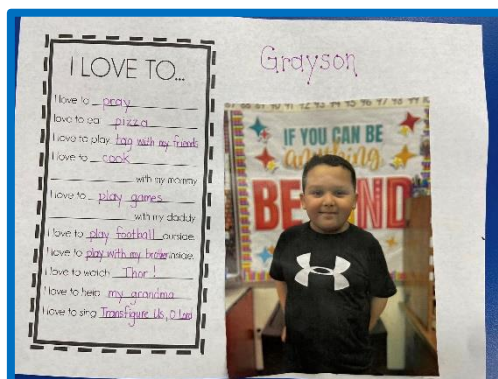 I LOVE TO...
I love to pray
I love to eat pizza
I love to play tag with my friends
I love to cook
with my mommy
I love to play games
with my daddy
I love to play football outside
I love to play with my brother inside
I love to watch Thor!
I love to help my grandma
I love to sing Transfigure Us, O Lord
Grayson
IF YOU CAN BE
anything
BE KIND